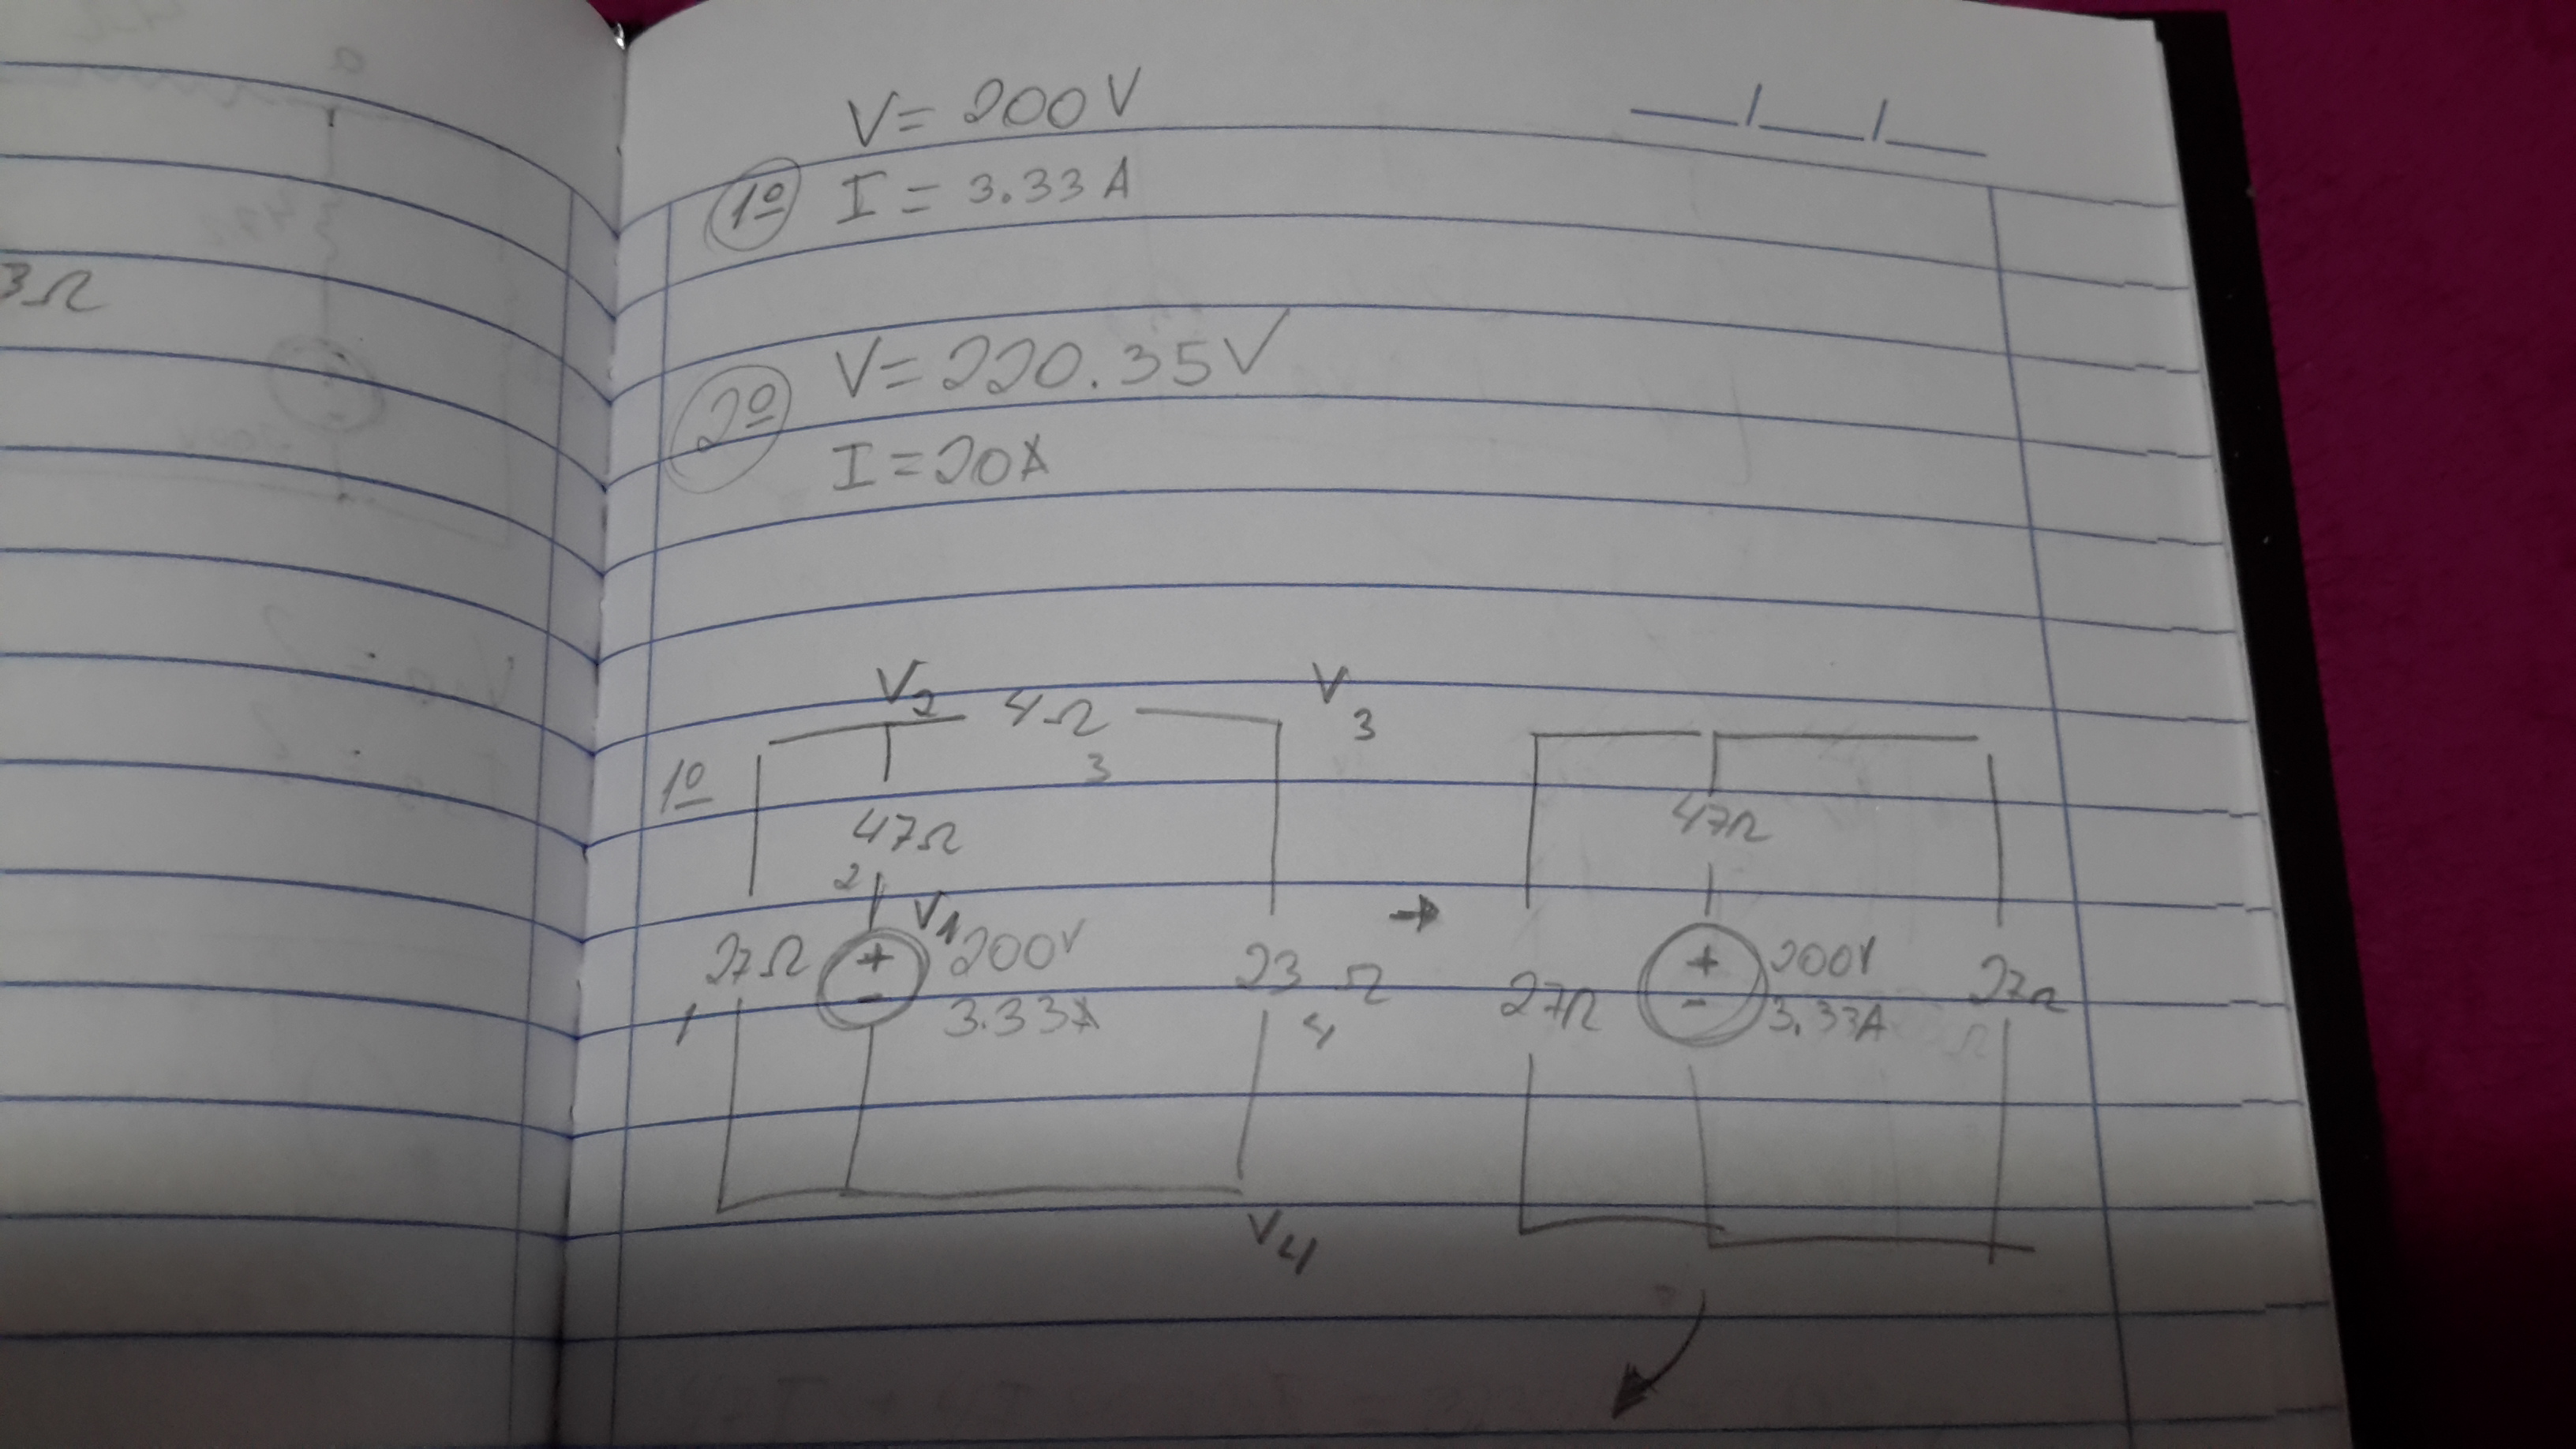 V = 200V
1º I = 3.33 A
2º V = 220.35V
I = 20A
3Ω
V2 4Ω V3
3
1º
47Ω
2
V1
27Ω + 200V
- 3.33A
1
23 Ω
4
V4
→
47Ω
27Ω + 200V
- 3.33A
27Ω